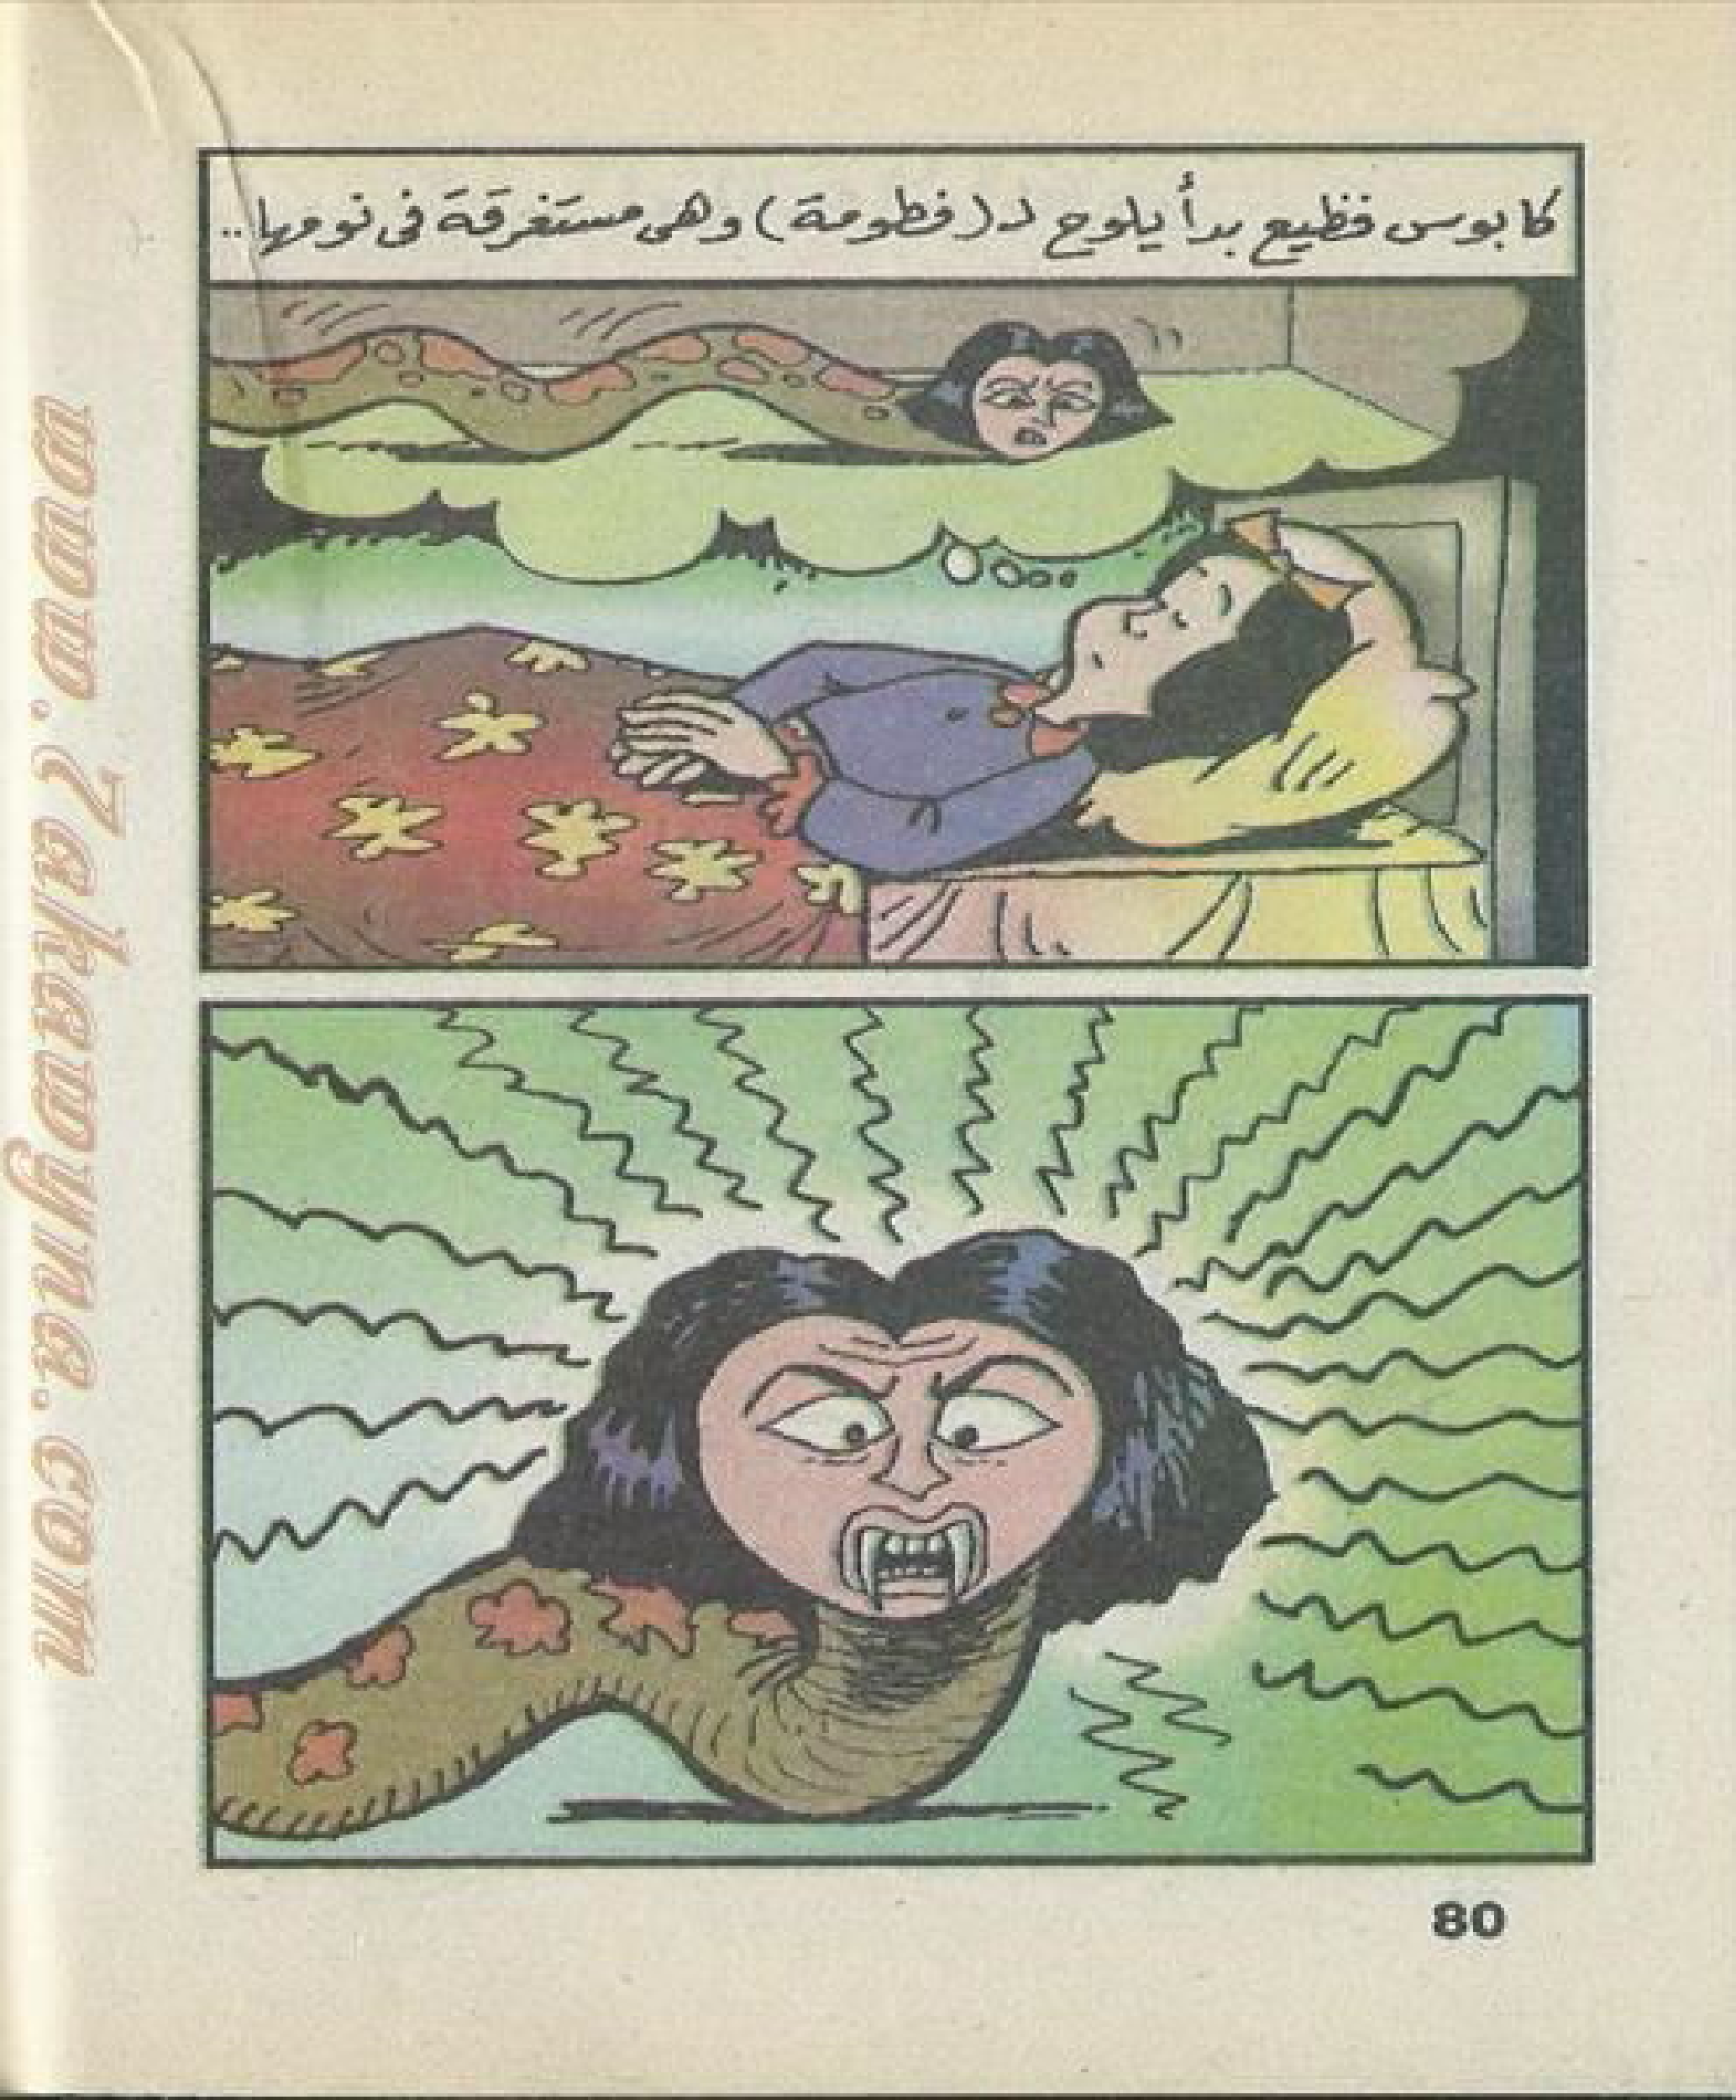 كابوس فظيع بدأ يلوح لـ (فطومة) وهى مستغرقة فى نومها..
80
www.7akawyna.com